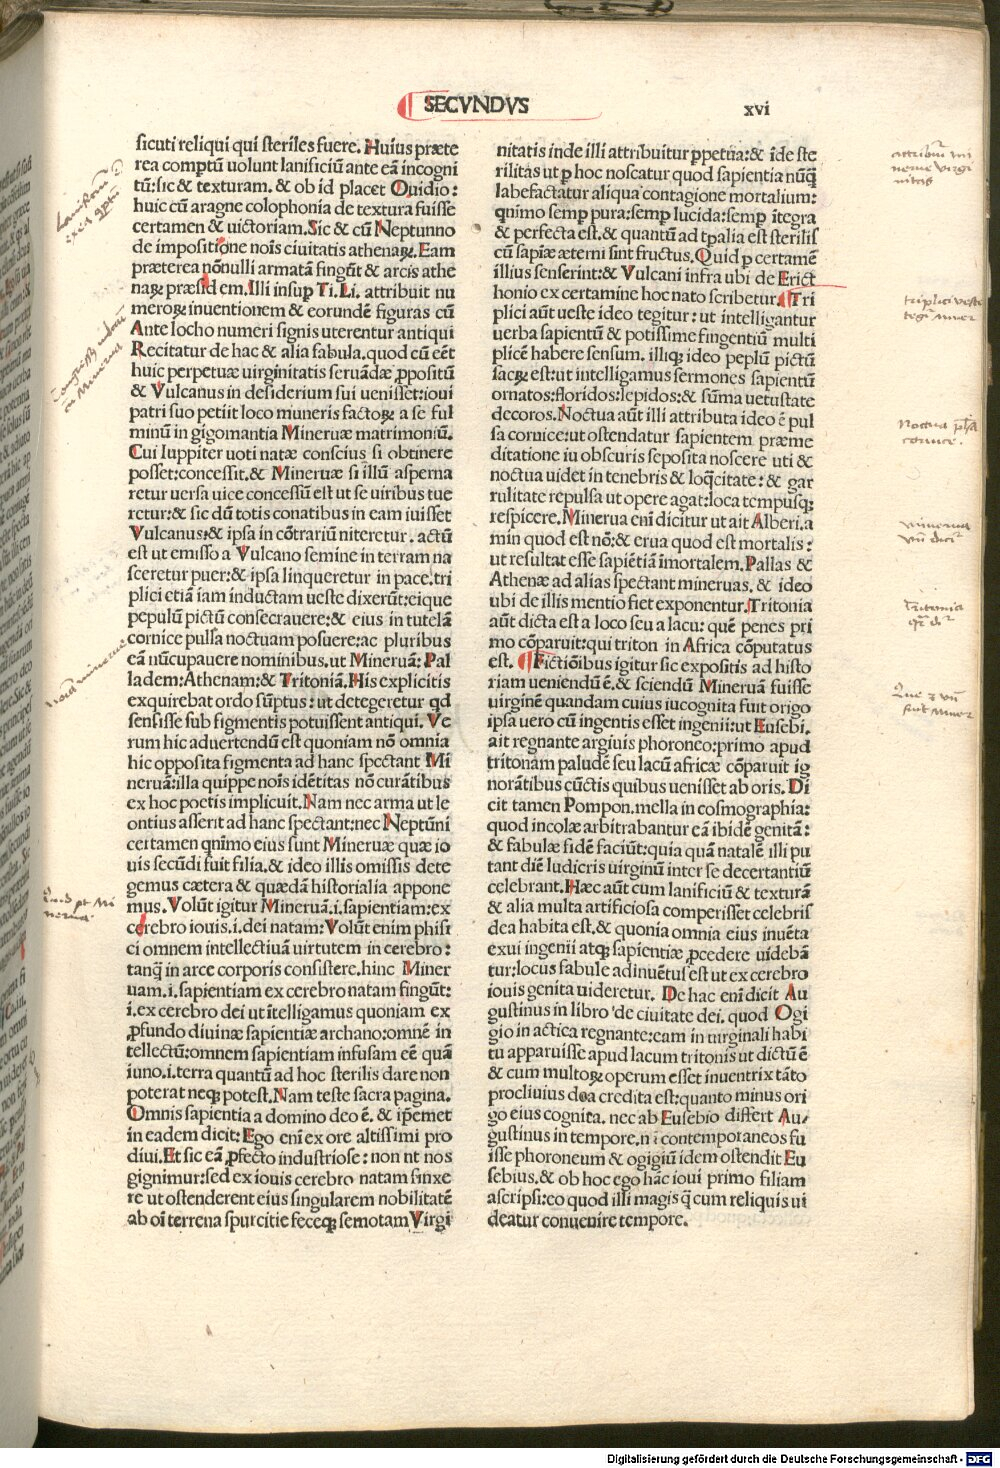 SECVNDVS
xvi
sicuti reliqui qui steriles fuere. Huius præte
rea comptū uolunt lanificiū ante eā incogni
tū: sic & texturam. & ob id placet Ouidio:
huic cū aragne colophonia de textura fuisse
certamen & uictoriam. Sic & cū Neptunno
de impositione nois̄ ciuitatis athenaꝝ. Eam
præterea nōnulli armatā fingūt & arcis athe
naꝝ præsidem. Illi insuꝑ Ti. Li. attribuit nu
meroꝝ inuentionem & eorundē figuras cū
Ante locho numeri signis uterentur antiqui
Recitatur de hac & alia fabula. quod cū cēt
huic perpetuæ uirginitatis seruādæ ꝓpositū
& Vulcanus in desiderium sui uenisset: ioui
patri suo petiit loco muneris factoꝝ a se ful
minū in gigomantia Mineruæ matrimoniū.
Cui Iuppiter uoti natæ conscius si obtinere
posset: concessit. & Mineruæ si illū asperna
retur uersa uice concessū est ut se uiribus tue
retur: & sic dū totis conatibus in eam iuisset
Vulcanus: & ipsa in cōtrariū niteretur. actū
est ut emisso a Vulcano semine in terram na
sceretur puer: & ipsa linqueretur in pace. tri
plici etiā iam inductam ueste dixerūt: eique
pepulū pictū consecrauere: & eius in tutelā
cornice pulsa noctuam posuere: ac pluribus
eā nūcupauere nominibus. ut Mineruā: Pal
ladem: Athenam: & Tritoniā. His explicitis
exquirebat ordo sūptus: ut detegeretur qd
sensisse sub figmentis potuissent antiqui. Ve
rum hic aduertendū est quoniam nō omnia
hic opposita figmenta ad hanc spectant Mi
neruā: illa quippe nois̄ idētitas nō curātibus
ex hoc poetis implicuit. Nam nec arma ut le
ontius asserit ad hanc spectant: nec Neptūni
certamen qnimo eius sunt Mineruæ quæ io
uis secūdi fuit filia. & ideo illis omissis dete
gemus cætera & quædā historialia appone
mus. Volūt igitur Mineruā. i. sapientiam: ex
cerebro iouis. i. dei natam: Volūt enim phisi
ci omnem intellectiuā uirtutem in cerebro:
tanq̄ in arce corporis consistere. hinc Miner
uam. i. sapientiam ex cerebro natam fingūt:
i. ex cerebro dei ut ītelligamus quoniam ex
ꝓfundo diuinæ sapientiæ archano: omnē in
tellectū: omnem sapientiam infusam eē quā
iuno. i. terra quantū ad hoc sterilis dare non
poterat neqꝫ potest. Nam teste sacra pagina.
Omnis sapientia a domino deo ē. & ip̄emet
in eadem dicit: Ego enī ex ore altissimi pro
diui. Et sic eā ꝓfecto industriose: non ut nos
gignimur: sed ex iouis cerebro natam finxe
re ut ostenderent eius singularem nobilitatē
ab oī terrena spurcitie feceqꝫ semotam Virgi
nitatis inde illi attribuitur ꝑpetua: & ideste
rilitas ut ꝑ hoc noscatur quod sapientia nūq̄
labefactatur aliqua contagione mortalium:
qnimo semꝑ pura: semꝑ lucida: semꝑ ītegra
& perfecta est. & quantū ad tꝑalia est sterilis
cū sapiæ æterni sint fructus. Quid ꝑ certamē
illius senserint: & Vulcani infra ubi de Erict
honio ex certamine hoc nato scribetur. Tri
plici aūt ueste ideo tegitur: ut intelligantur
uerba sapientū & potissime fingentiū multi
plicē habere sensum. illiqꝫ ideo peplū pictū
sacꝝ est: ut intelligamus sermones sapientū
ornatos: floridos: lepidos: & sūma uetustate
decoros. Noctua aūt illi attributa ideo ē pul
sa cornice: ut ostendatur sapientem præme
ditatione iu obscuris seposita noscere uti &
noctua uidet in tenebris & loq̄citate: & gar
rulitate repulsa ut opere agat: loca tempusqꝫ
respicere. Minerua enī dicitur ut ait Alberi. a
min quod est nō: & erua quod est mortalis:
ut resultat esse sapiētiā īmortalem. Pallas &
Athenæ ad alias spectant mineruas. & ideo
ubi de illis mentio fiet exponentur. Tritonia
aūt dicta est a loco seu a lacu: quē penes pri
mo cōparuit: qui triton in Africa cōputatus
est. Fictiōibus igitur sic expositis ad histo
riam ueniendū ē. & sciendū Mineruā fuisse
uirginē quandam cuius incognita fuit origo
ipsa uero cū ingentis esset ingenii: ut Eusebi.
ait regnante argiuis phoroneo: primo apud
tritonam paludē seu lacū africæ cōparuit ig
norātibus cūctis quibus uenisset ab oris. Di
cit tamen Pompon. mella in cosmographia:
quod incolæ arbitrabantur eā ibidē genitā:
& fabulæ fidē faciūt: quia quā natalē illi pu
tant diē ludicris uirginū inter se decertantiū
celebrant. Hæc aūt cum lanificiū & texturā
& alia multa artificiosa comperisset celebris
dea habita est. & quonia omnia eius inuēta
exui ingenii atqꝫ sapientiæ ꝓcedere uidebā
tur: locus fabule adinuētus est ut ex cerebro
iouis genita uideretur. De hac enī dicit Au
gustinus in libro de ciuitate dei. quod Ogi
gio in actica regnante: eam in uirginali habi
tu apparuisse apud lacum tritonis ut dictū ē
& cum multoꝝ operum esset inuentrix tāto
procliuius dea credita est: quanto minus ori
go eius cognita. nec ab Eusebio differt Au,
gustinus in tempore. n ī contemporaneos fu
isse phoroneum & ogigiū idem ostendit Eu
sebius. & ob hoc ego hāc ioui primo filiam
ascripsi: eo quod illi magis q̄ cum reliquis ui
deatur conuenire tempore.
Digitalisierung gefördert durch die Deutsche Forschungsgemeinschaft - DFG